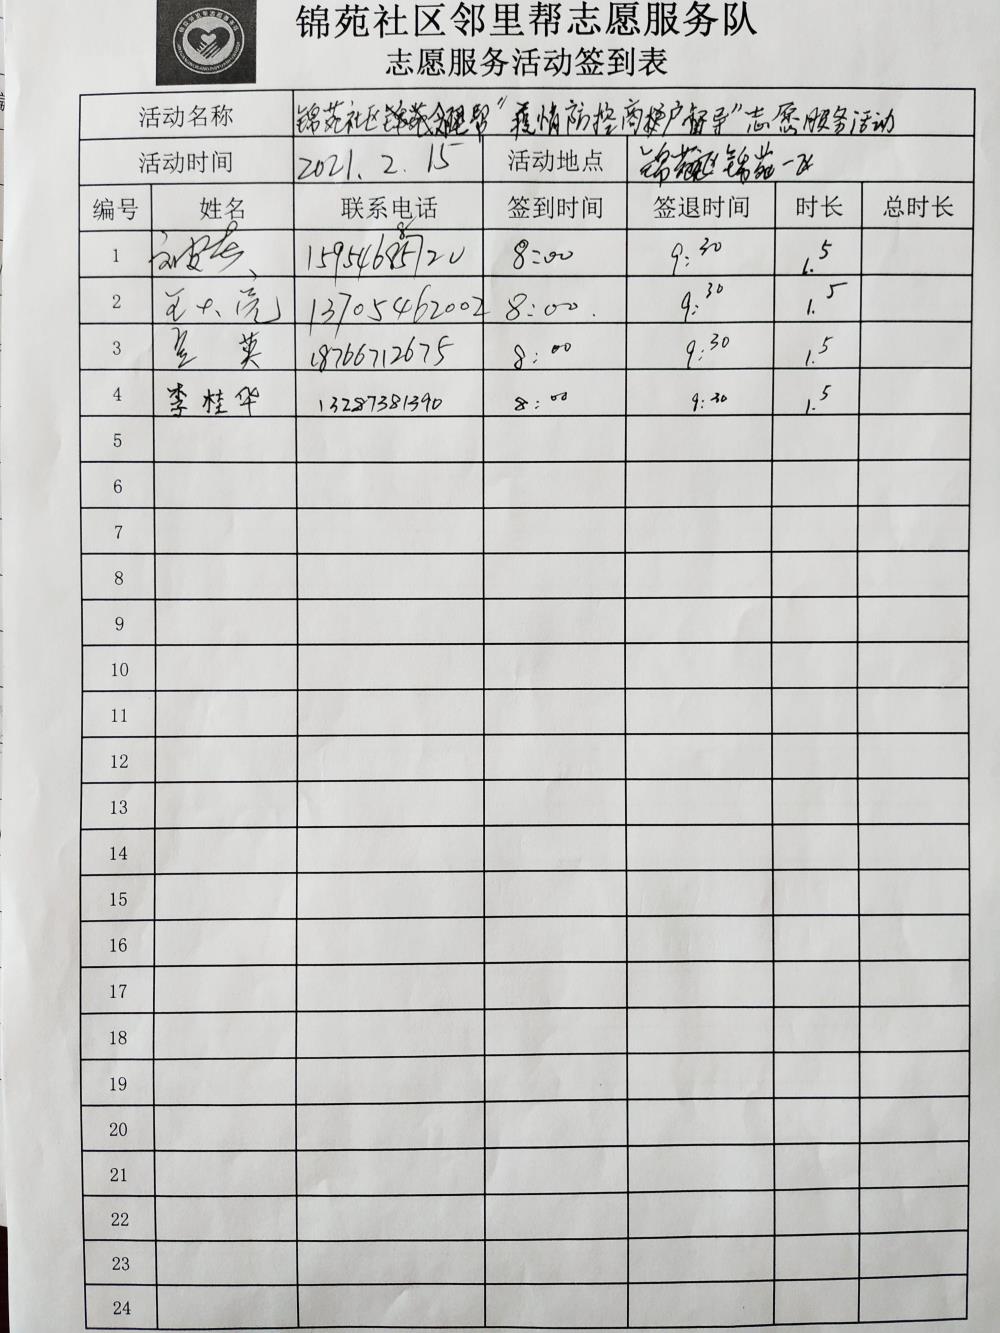 锦苑社区邻里帮志愿服务队
志愿服务活动签到表
活动名称 锦苑社区 邻里帮"疫情防控商户督导"志愿服务活动
活动时间 2021.2.15 活动地点 锦苑一区
编号 姓名 联系电话 签到时间 签退时间 时长 总时长
1 8:00 9:30 1.5
2 王大亮 13705462002 8:00. 9:30 1.5
3 英 18766712675 8:00 9:30 1.5
4 李桂华 13287381390 8:00 9:30 1.5
5
6
7
8
9
10
11
12
13
14
15
16
17
18
19
20
21
22
23
24